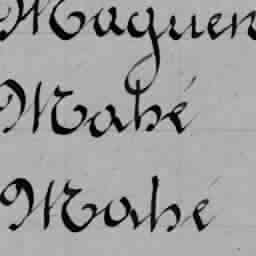 Maguen
Mahé
Mahé